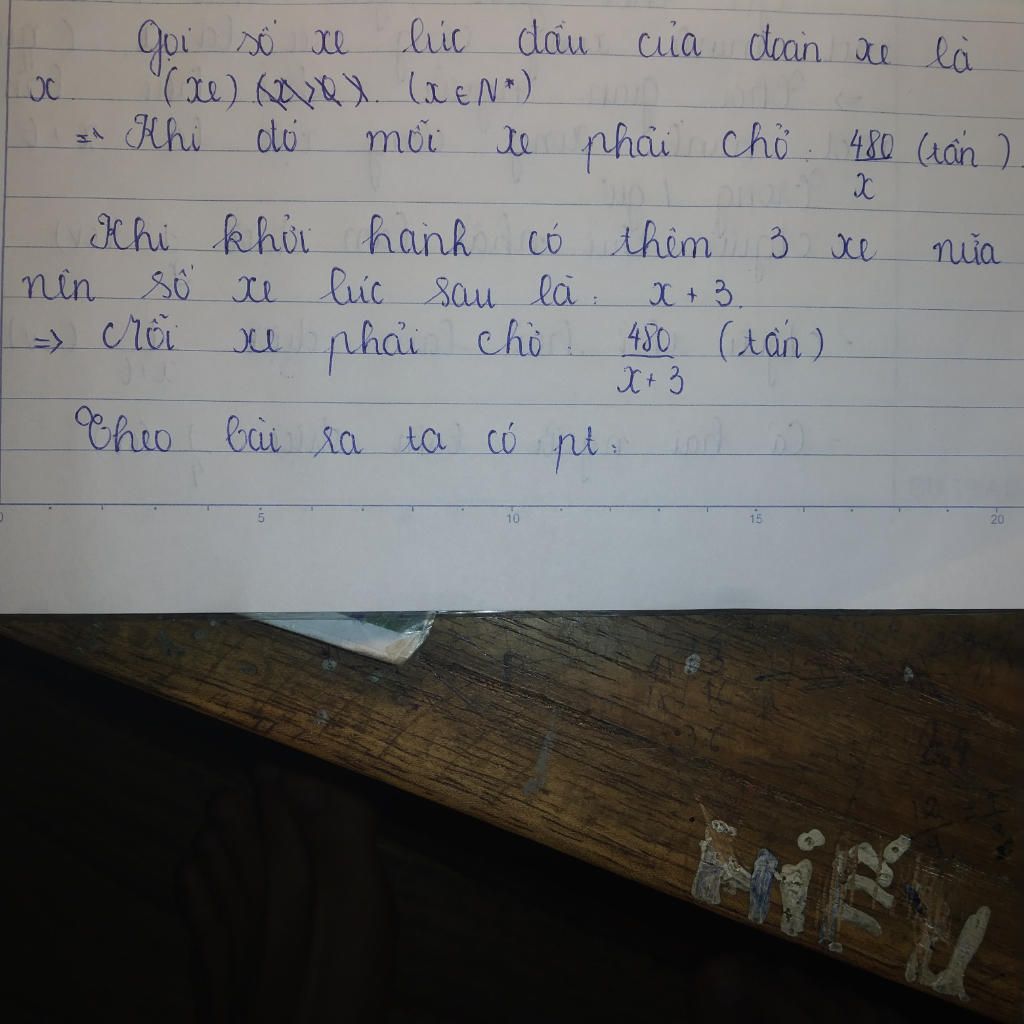 Gọi số xe lúc đầu của đoàn xe là
x (xe) (x>0). (x ∈ N*)
=> Khi đó mỗi xe phải chở : 480/x (tấn).
Khi khởi hành có thêm 3 xe nữa
nên số xe lúc sau là : x + 3.
=> Mỗi xe phải chở : 480/x+3 (tấn)
Theo bài ra ta có pt :
0 5 10 15 20
HiẾU